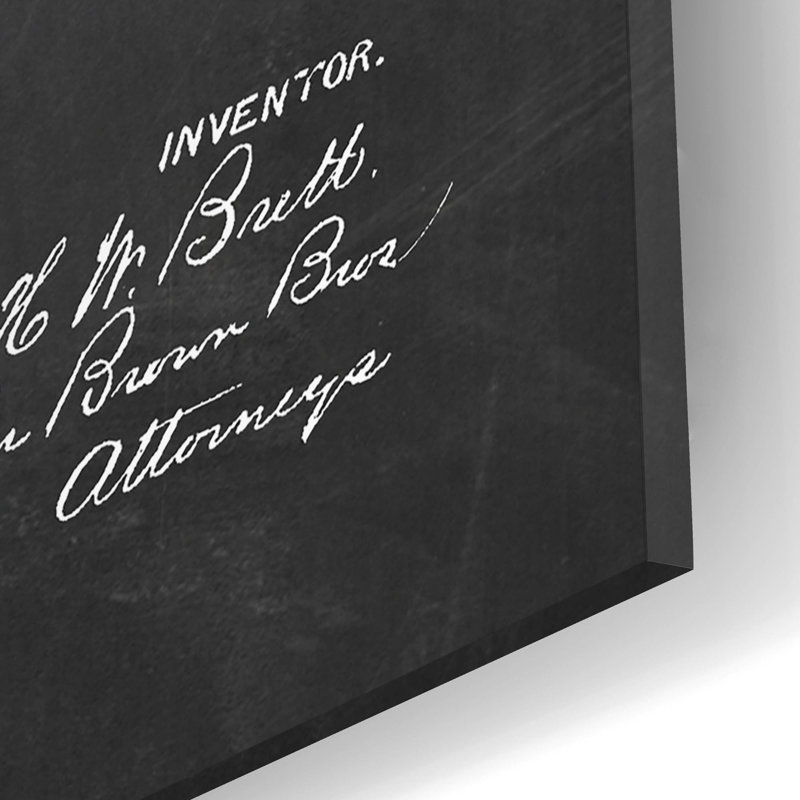 INVENTOR.
H W. Brett.
Brown Bros
Attorneys